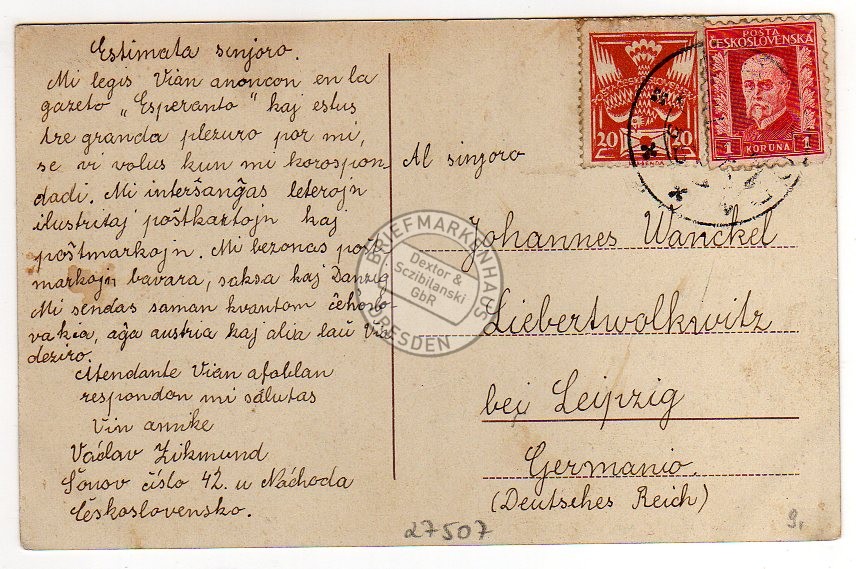 Estimata sinjoro.
Mi legis Vian anoncon en la
gazeto „Esperanto“ kaj estus
tre granda plezuro por mi,
se vi volus kun mi korospon-
dadi. Mi interŝanĝas leterojn
ilustritaj poŝtkartojn kaj
poŝtmarkojn. Mi bezonas poŝt-
markojn bavara, saksa kaj Danzig
Mi sendas saman kvantom ĉehoslo-
vakia, aĝa austria kaj alia laŭ Via
deziro.
Atendante Vian afablan
respondon mi salutas
Vin amike
Václav Zikmund
Šonov číslo 42. u Náchoda
Československo.
POŠTA
ČESKOSLOVENSKÁ
20 20
1 KORUNA 1
Al sinjoro
Johannes Wanckel
Liebertwolkwitz
bei Leipzig
Germanio.
(Deutsches Reich)
BRIEFMARKENHAUS
Dextor &
Sczibilanski
GbR
DRESDEN
27507
9,